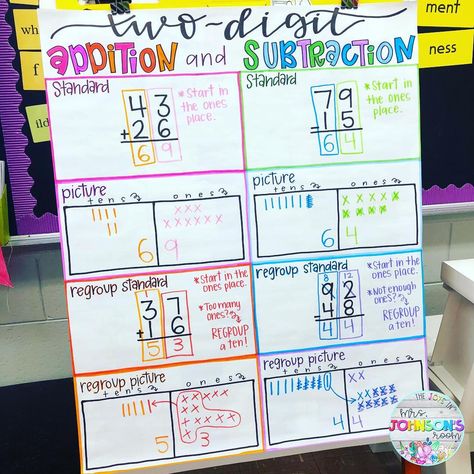 two-digit
ADDITION and SUBTRACTION
Standard
43
+ 26
69
*Start in
the ones
place.
Standard
79
- 15
64
*Start in
the ones
place.
picture
tens ones
6 9
picture
tens ones
6 4
regroup standard
1
37
+ 16
53
*Start in the
ones place.
*Too many
ones?
REGROUP
a ten!
regroup standard
8 12
92
- 48
44
*Start in the
ones place.
*Not enough
ones?
REGROUP
a ten!
regroup picture
tens ones
5 3
regroup picture
tens ones
4 4
ment
ness
ful
THE JOYS IN
mrs.
JOHNSON'S
room